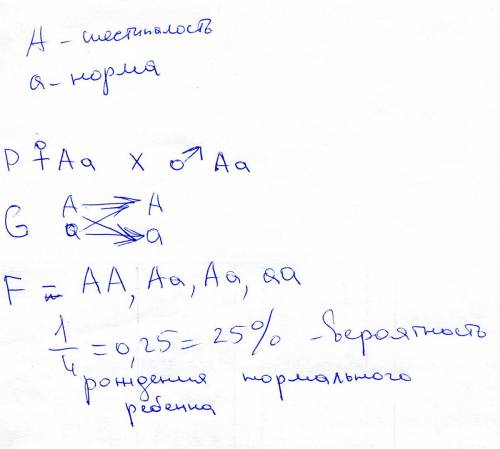 A - шестипалость
a - норма
P ♀Aa X ♂ Aa
G A A
a a
F = AA, Aa, Aa, aa
1/4 = 0,25 = 25% - вероятность
рождения нормального
ребенка